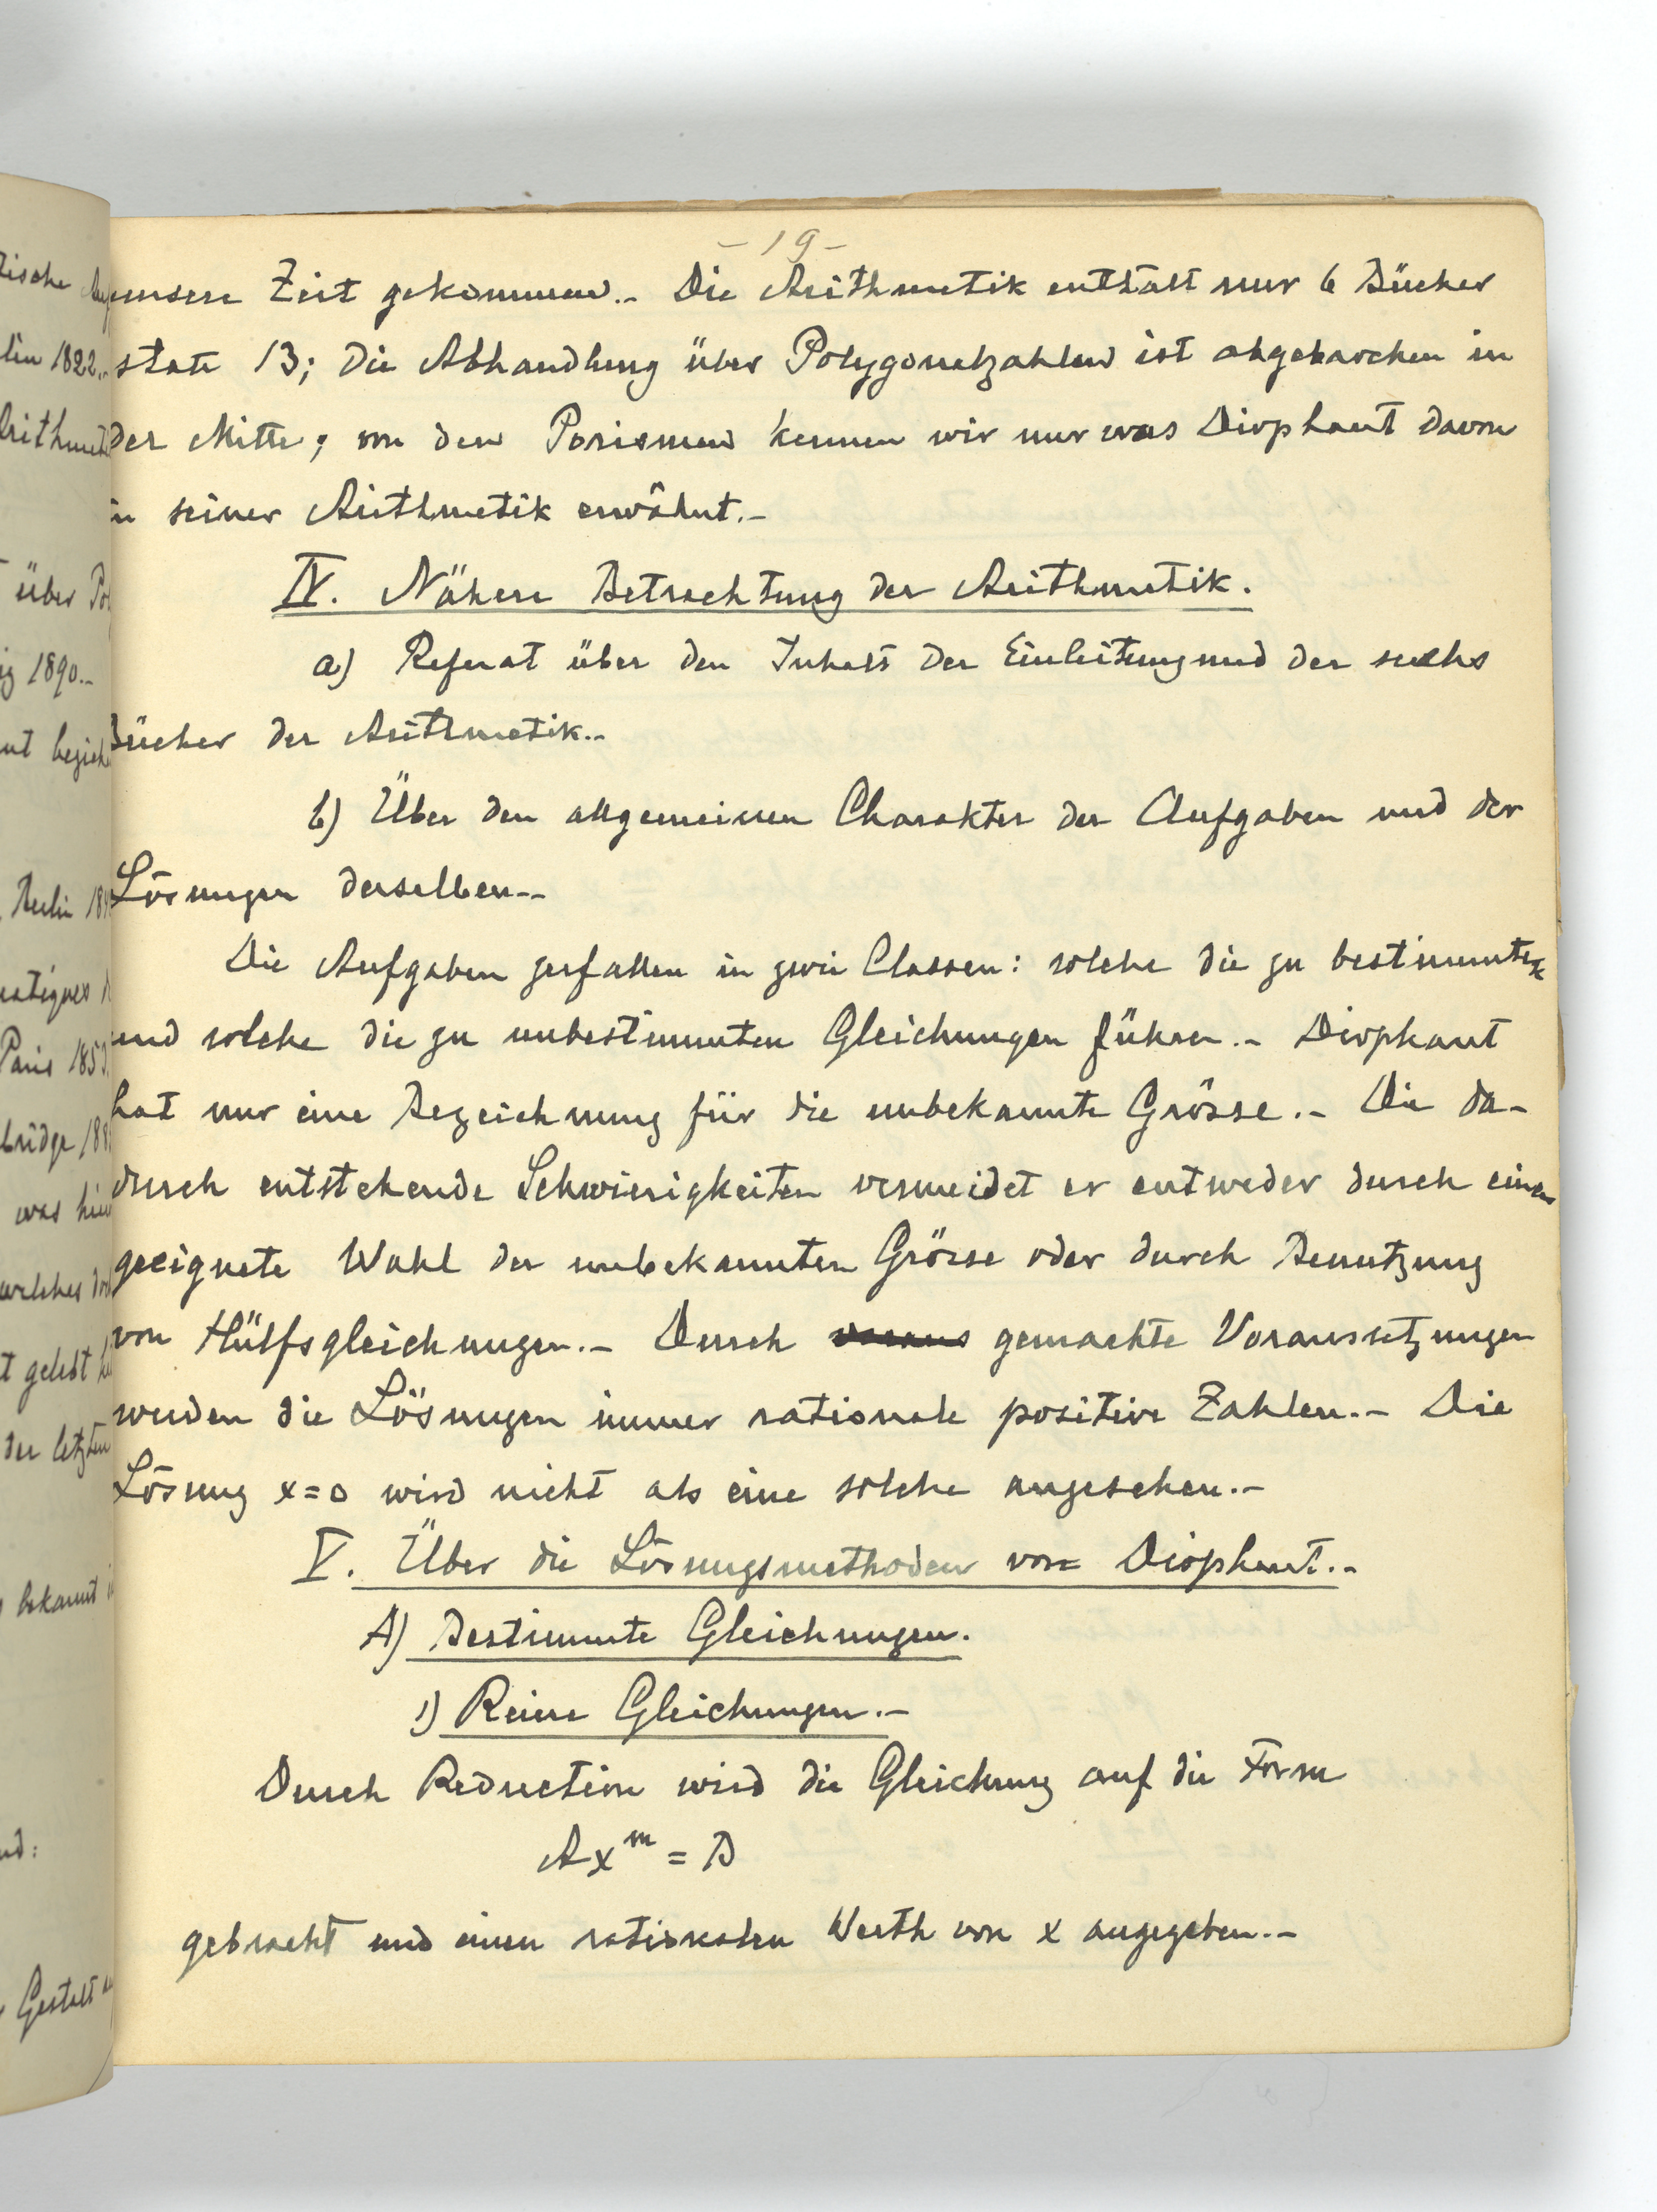 - 19 -
unsere Zeit gekommen.- Die Arithmetik enthält nur 6 Bücher
statt 13; die Abhandlung über Polygonalzahlen ist abgebrochen in
der Mitte; von den Porismen kennen wir nur was Diophant davon
in seiner Arithmetik erwähnt.-
IV. Nähere Betrachtung der Arithmetik.
a) Referat über den Inhalt der Einleitung und der sechs
Bücher der Arithmetik.-
b) Über den allgemeinen Charakter der Aufgaben und der
Lösungen derselben.-
Die Aufgaben zerfallen in zwei Classen: solche die zu bestimmten
und solche die zu unbestimmten Gleichungen führen.- Diophant
hat nur eine Bezeichnung für die unbekannte Grösse.- Die da-
durch entstehende Schwierigkeiten vermeidet er entweder durch eine
geeignete Wahl der unbekannten Grösse oder durch Benutzung
von Hülfsgleichungen.- Durch gemachte Voraussetzungen
werden die Lösungen immer rationale positive Zahlen.- Die
Lösung x=0 wird nicht als eine solche angesehen.-
V. Über die Lösungsmethoden von Diophant.-
A) Bestimmte Gleichungen.
1) Reine Gleichungen.-
Durch Reduction wird die Gleichung auf die Form
Ax^m = B
gebracht und einen rationalen Werth von x angegeben.-